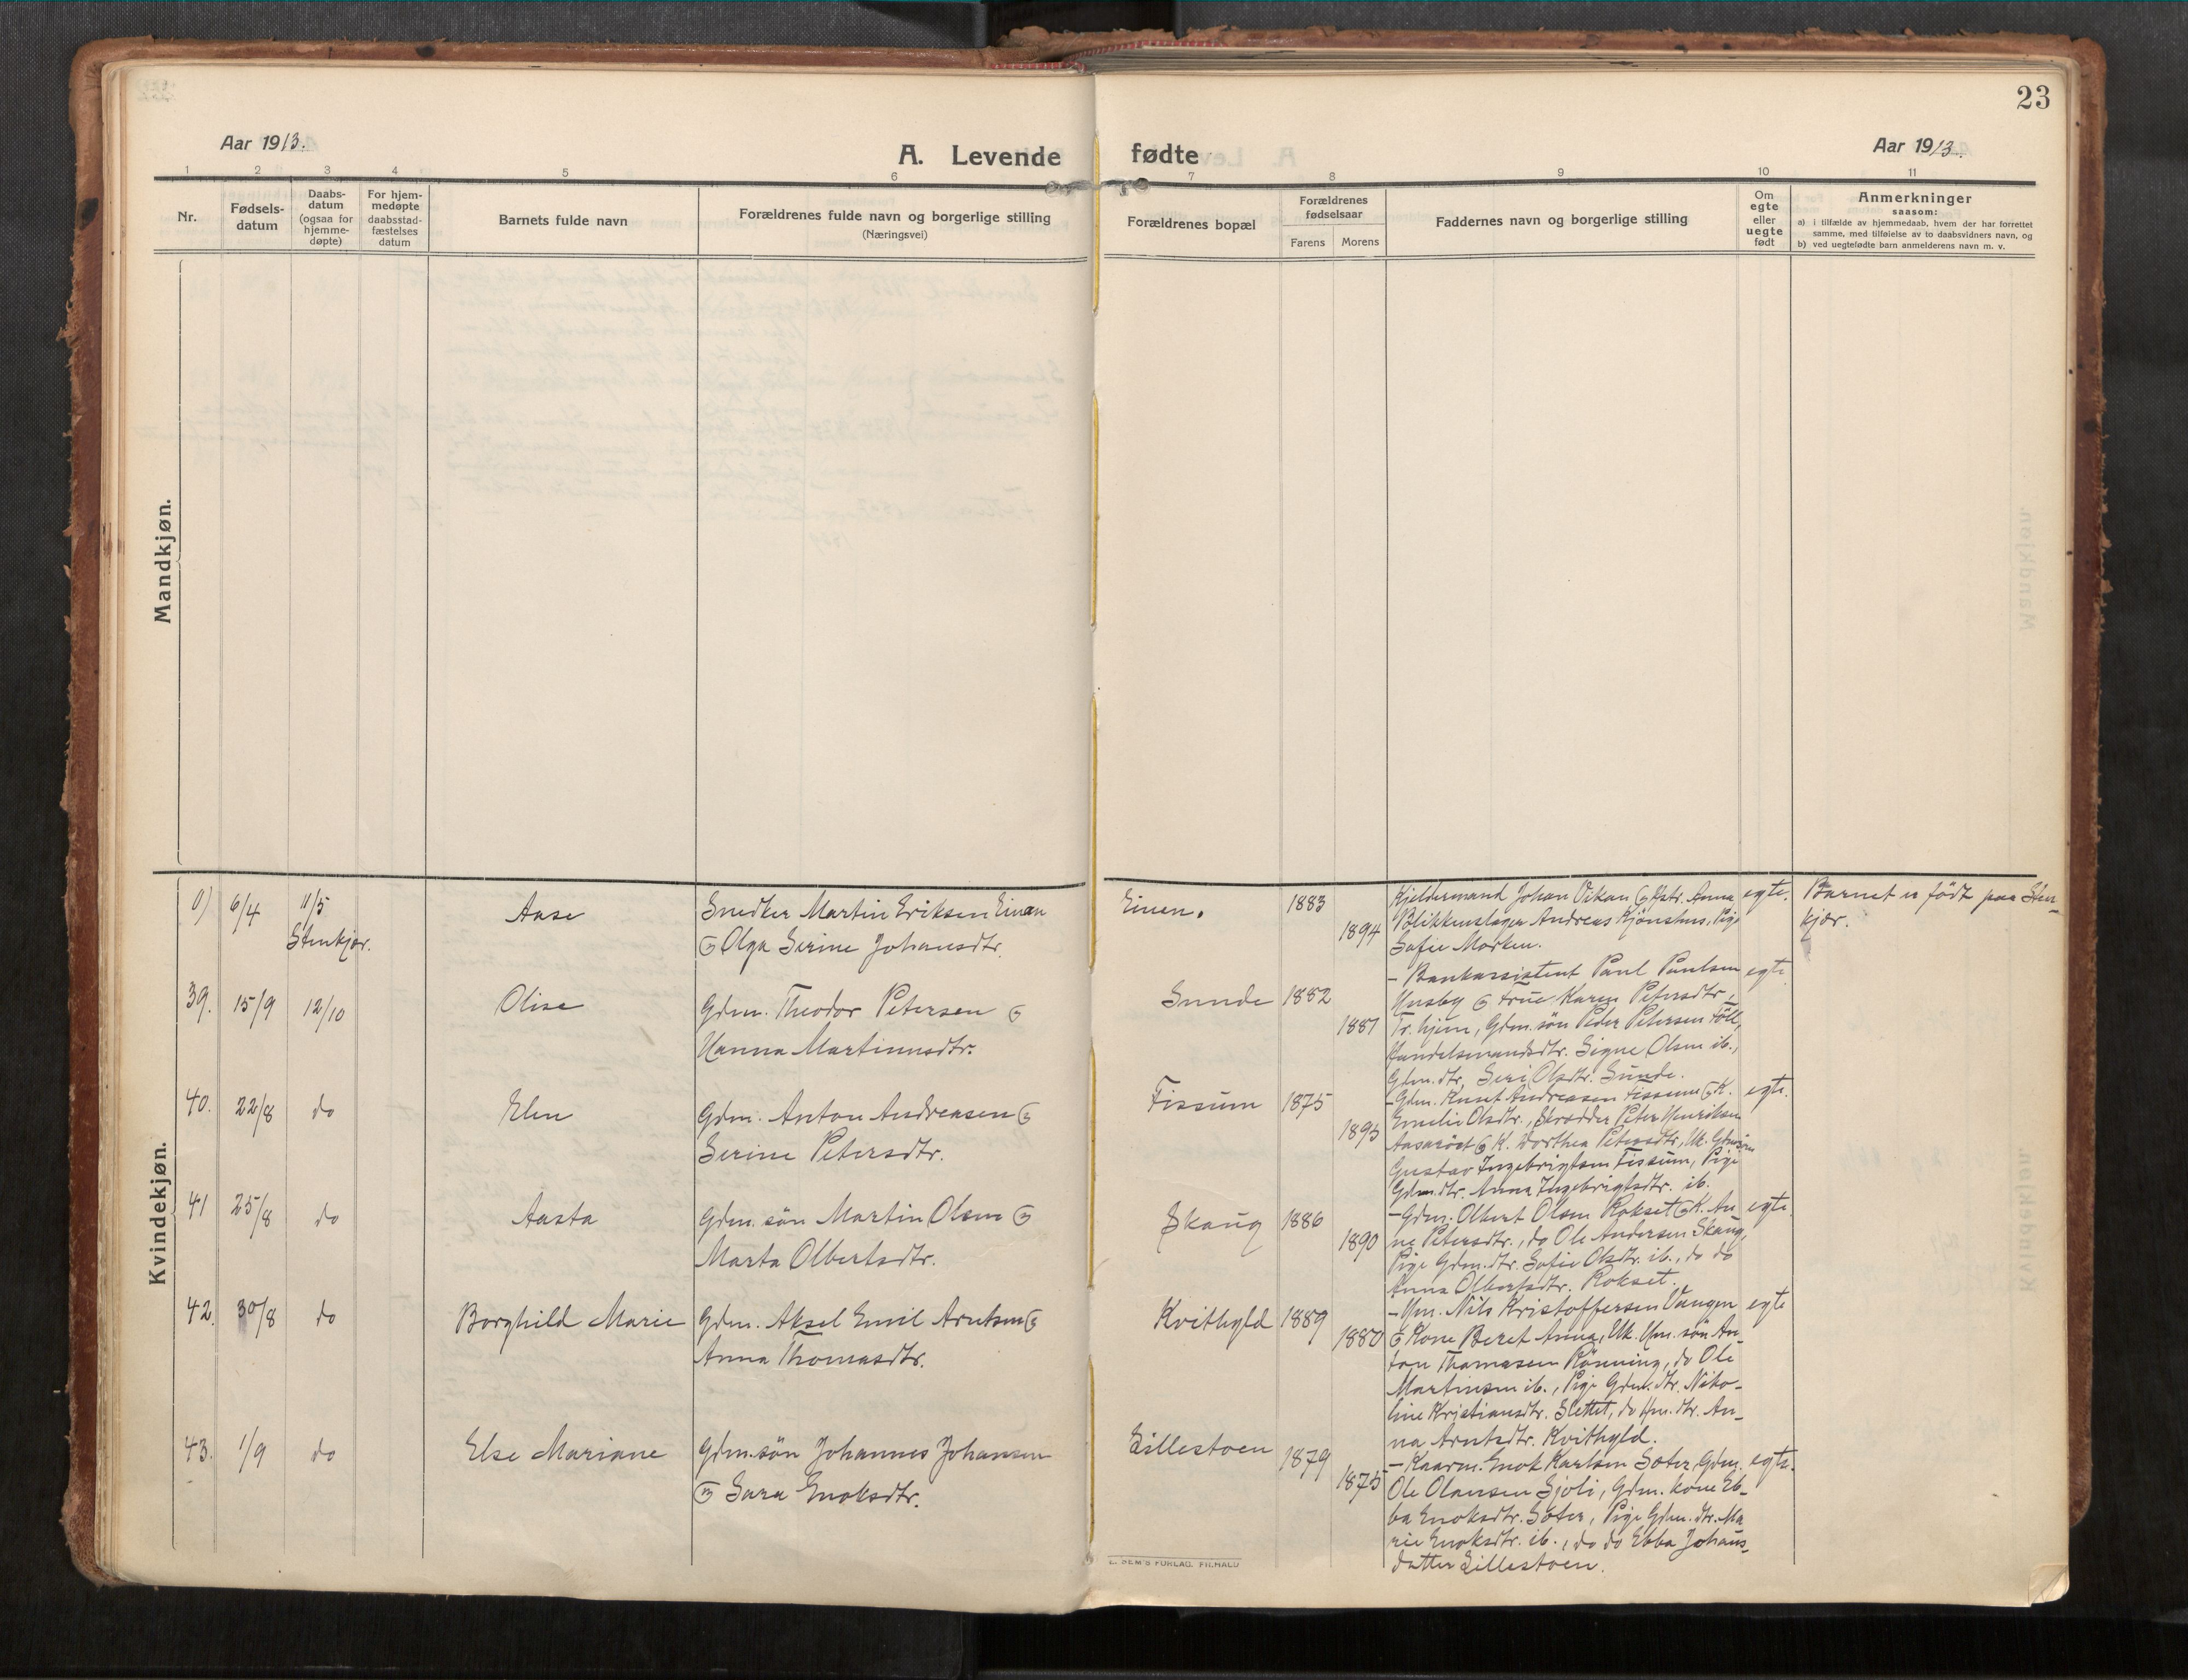 23
Aar 1913.
A. Levende fødte
Aar 1913.
1 2 3 4 5 6 7 8 9 10 11
Nr.
Fødsels-
datum
Daabs-
datum
(ogsaa for
hjemme-
døpte)
For hjem-
medøpte
daabsstad-
fæstelses
datum
Barnets fulde navn
Forældrenes fulde navn og borgerlige stilling
(Næringsvei)
Forældrenes bopæl
Forældrenes
fødselsaar
Farens Morens
Faddernes navn og borgerlige stilling
Om
egte
eller
uegte
født
Anmerkninger
saasom:
a) i tilfælde av hjemmedaab, hvem der har forrettet
samme, med tilføielse av to daabsvidners navn, og
b) ved uegtefødte barn anmelderens navn m. v.
Mandkjøn.
Kvindekjøn.
0) 6/4 11/5
Stenkjær.
Aase
Snedker Martin Eriksen Einan
& Olga Serine Johansdtr.
Einen.
1883
1894
Johan Vikan & Anna
Blikkenslager Andreas Kjönshus, Pige
Sofie Morken.
egte.
Barnet er født paa Sten-
kjær.
39. 15/9 12/10
Olise
Gdm. Theodor Petersen &
Hanna Martinusdtr.
Sunde
1882
1887
- Bankassistent Paul Paulsen
Husby & frue Karen Petersdtr,
Tr.hjem, Gdm. søn Peder Petersen Föll,
Handelsmandsdtr. Signe Olsen ib.,
Gdm. dtr. Seri Olsdtr. Sunde.
egte
40. 22/8 do
Elen
Gdm. Anton Andreasen &
Serine Petersdtr.
Fissum
1875
1895
- Gdm. Andreasen Fissum & K.
Emelie Olsdtr., Skrædder Peter Henriksen
& K. Dorthea Petersdtr, Uk. Gdmsøn
Gustav Ingebrigtsen Fissum, Pige
Gdm. dtr. Anna Ingebrigtsdtr. ib.
egte.
41 25/8 do
Aasta
Gdm. søn Martin Olsen &
Marta Olbertsdtr.
Skaug
1886
1890
- Gdm. Olbert Olsen Rokset & K. An
ne Petersdtr., do Ole Andersen Skaug,
Pige Gdm. dtr. Sofie Olsdtr. ib., do do
Anna Olbertsdtr. Rokset.
egte.
42. 30/8 do
Borghild Marie
Gdm. Aksel Emil Arntsen &
Anna Thomasdtr.
Kvithyld
1889
1880
- Hm. Nils Kristoffersen Vangen
& Kone Beret Anna, Uk. Hm. søn An-
ton Thomasen Rönning, do Ole
Martinsen ib., Pige Gdm. dtr. Niko-
line Kristiansdtr. Slettet, do Hm. dtr. An-
na Arntsdtr. Kvithyld.
egte
43. 1/9 do
Else Mariane
Gdm. søn Johannes Johansen
& Sara Enoksdtr.
Lillestoen
1879
1875
- Kaarm. Enok Karlsen Sæter, Gdm.
Ole Olausen Sjoli, Gdm. kone Eb-
ba Enoksdtr. Sæter, Pige Gdm. dtr. Ma
rie Enoksdtr. ib., do do Ebba Johans-
datter Lillestoen.
egte.
E. SEM'S FORLAG. F.HALD